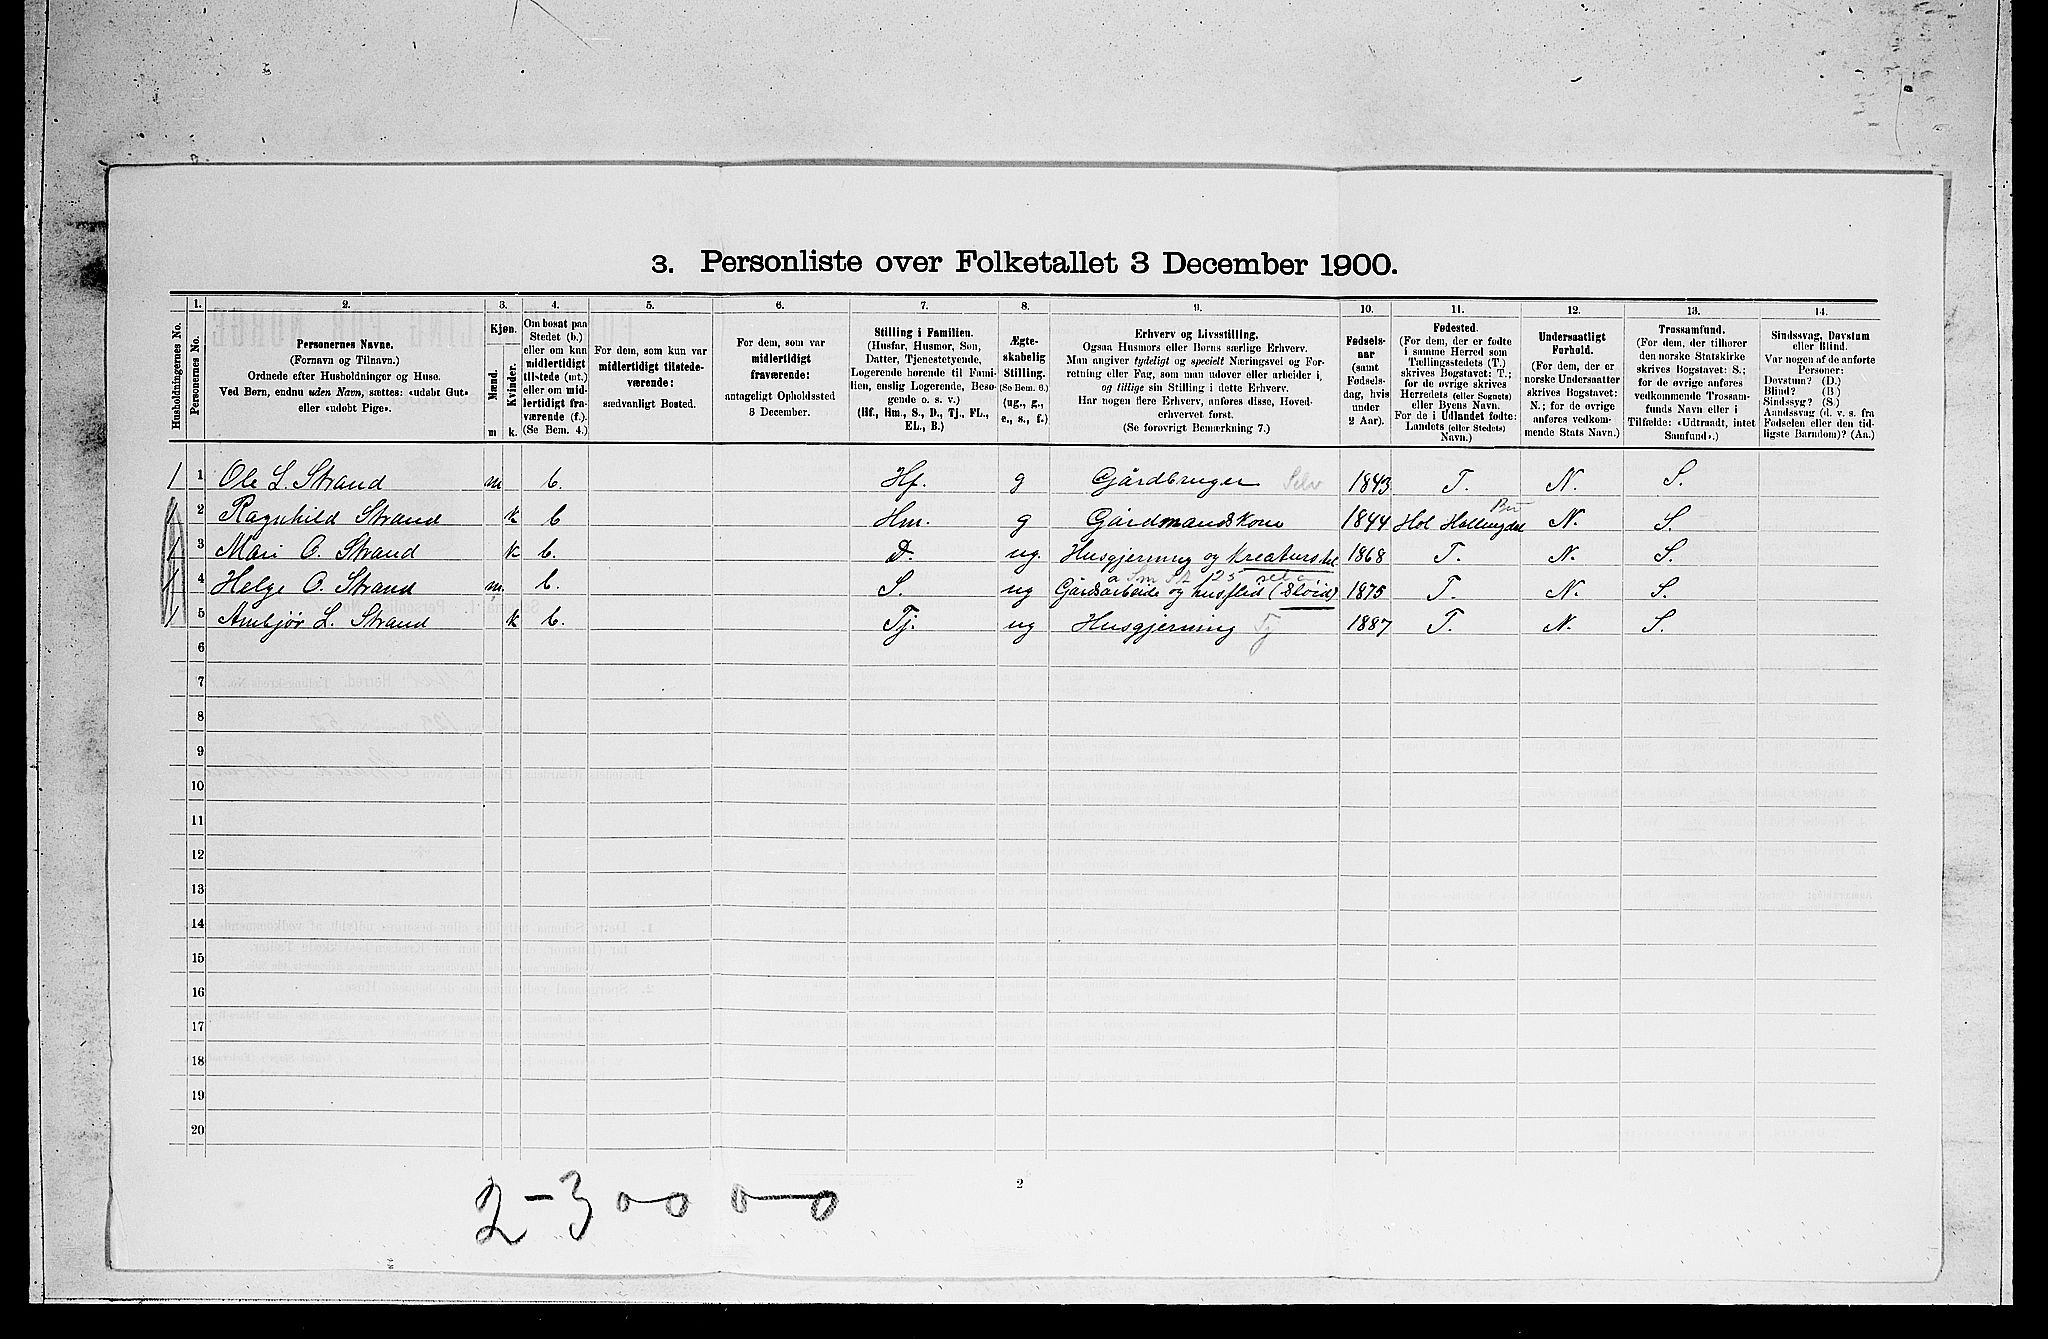 3. Personliste over Folketallet 3 December 1900.
1. 2. 3. 4. 5. 6. 7. 8. 9. 10. 11. 12. 13. 14.
Husholdningernes No.
Personernes No.
Personernes Navne.
(Fornavn og Tilnavn.)
Ordnede efter Husholdninger og Huse.
Ved Børn, endnu uden Navn, sættes: «udøbt Gut»
eller «udøbt Pige».
Kjøn.
Mænd.
Kvinder.
m k.
Om bosat paa
Stedet (b.)
eller om kun
midlertidigt
tilstede (mt.)
eller om mid-
lertidigt fra-
værende (f.)
(Se Bem. 4.)
For dem, som kun var
midlertidigt tilstede-
værende:
sædvanligt Bosted.
For dem, som var
midlertidigt
fraværende:
antageligt Opholdssted
3 December.
Stilling i Familien.
(Husfar, Husmor, Søn,
Datter, Tjenestetyende,
Logerende hørende til Fami-
lien, enslig Logerende, Besø-
gende o. s. v.)
(Hf., Hm., S., D., Tj., FL.,
EL., B.)
Ægte-
skabelig
Stilling.
(Se Bem. 6.)
(ug., g.,
e., s., f.)
Erhverv og Livsstilling.
Ogsaa Husmors eller Børns særlige Erhverv.
Man angiver tydeligt og specielt Næringsvei og For-
retning eller Fag, som man udøver eller arbeider i,
og tillige sin Stilling i dette Erhverv.
Har nogen flere Erhverv, anføres disse, Hoved-
erhvervet først.
(Se forøvrigt Bemærkning 7.)
Fødsels-
aar
(samt
Fødsels-
dag, hvis
under
2 Aar).
Fødested.
(For dem, der er fødte
i samme Herred som
Tællingsstedets (T.)
skrives Bogstavet: T.;
for de øvrige skrives
Herredets (eller Sognets)
eller Byens Navn.
For de i Udlandet fødte:
Landets (eller Stedets)
Navn.)
Undersaatligt
Forhold.
(For dem, der er
norske Undersaatter
skrives Bogstavet:
N.; for de øvrige
anføres vedkom-
mende Stats Navn.)
Trossamfund.
(For dem, der tilhører
den norske Statskirke
skrives Bogstavet: S.;
for de øvrige anføres
vedkommende Trossam-
funds Navn eller i
Tilfælde: «Udtraadt, intet
Samfund».)
Sindssvag, Døvstum
eller Blind.
Var nogen af de anførte
Personer:
Døvstum? (D.)
Blind? (B.)
Sindssyg? (S.)
Aandssvag (d. v. s. fra
Fødselen eller den tid-
ligste Barndom)? (Aa.)
1 1 Ole L. Strand m b. Hf. g Gårdbruger Selv 1843 T. N. S.
1 2 Ragnhild Strand k b Hm. g Gårdmandskone 1844 Hol Hallingdal Bu N. S.
1 3 Mari O. Strand k b. D. ug. Husgjerning og Kreaturstel 1868 T. N. S.
1 4 Helge O. Strand m. b. S. ug Gårdsarbeide og husflid (Sløid) 1875 T. N. S.
1 5 Ambjør L. Strand k b. Tj. ug Husgjerning Tj 1887 T. N. S.
6
7
8
9
10
11
12
13
14
15
16
17
18
19
20
2
2-3 00 0-0